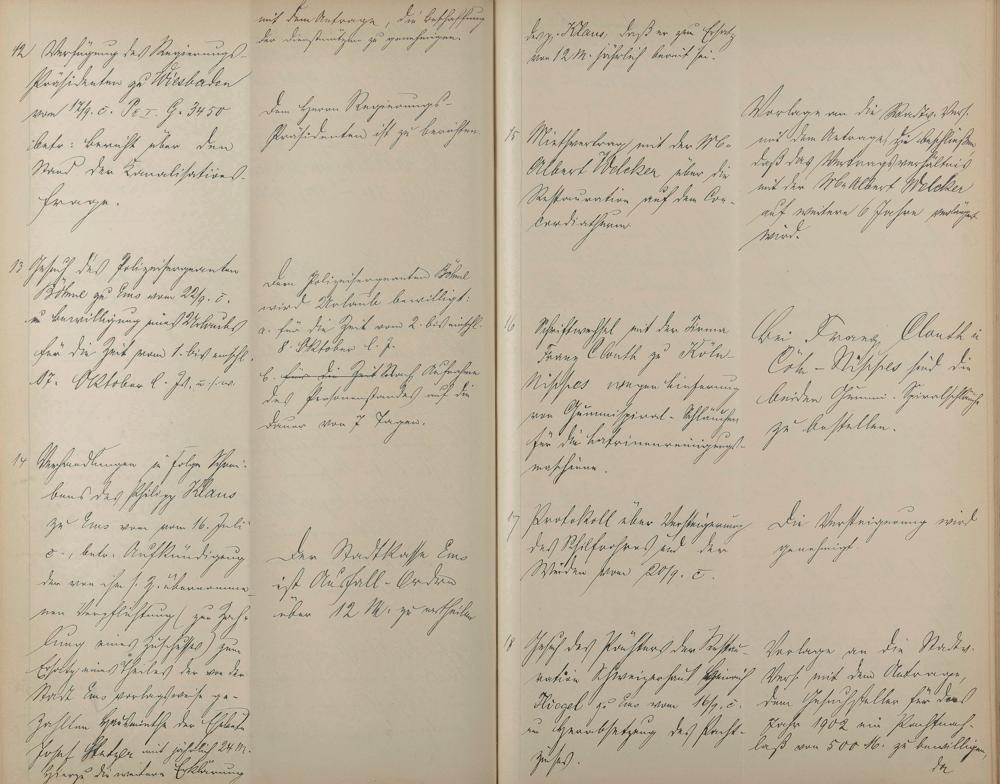 mit dem Antrage, die Beschaffung
der Dienstmützen zu genehmigen.
12 Verfügung des Regierungs-
Präsidenten zu Wiesbaden
vom 17/9. c. Pr. I. G. 3450
betr: Bericht über den
Stand der Kanalisations-
frage.
Dem Herrn Regierungs-
Präsidenten ist zu berichten.
13 Gesuch des Polizeisergeanten
zu Ems vom 22/9. c.
Bewilligung eines Urlaubs
für die Zeit vom 1. bis einschl.
17. Oktober l. Js.
Dem Polizeisergeanten
wird Urlaub bewilligt:
a. für die Zeit vom 2. bis einschl.
8. Oktober l. J.
b. für die Zeit nach Aufnahme
des Personenstandes auf die
Dauer von 7 Tagen.
14 Verhandlungen in Folge Schrei-
bens des Philipp Klaus
zu Ems vom 16. Juli
c., betr. Aufkündigung
der von ihm s. Z. übernomme-
nen Verpflichtung (zur Zah-
lung eines Zuschusses) zum
Ersatz eines Theiles der von der
Stadt Ems vorlagsweise ge-
zahlten Hausmiethe der
Josef mit jährlich 24 M.
Hierzu die weitere Erklärung
Der Stadtkasse Ems
ist Ausfall-Ordre
über 12 M. zu ertheilen
des p. Klaus, daß er zum Ersatz
von 12 M. jährlich bereit sei.
15 Miethvertrag mit der
Albert Welcker über die
Restauration auf dem Con-
cordiathurm
Vorlage an die Stadtv. Vers.
mit dem Antrage, zu beschließen
daß das Vertragsverhältnis
mit der Albert Welcker
auf weitere 6 Jahre verlängert
wird.
16 Schriftwechsel mit der Firma
Franz Clouth zu Köln-
Nippes wegen Lieferung
von Gummispiral-Schläuchen
für die Latrinenreinigungs-
maschine.
Bei Franz Clouth in
Cöln-Nippes sind die
beiden Gummi-Spiralschläuche
zu bestellen.
17 Protokoll über Versteigerung
des Schilfrohres und der
Weiden vom 20/9. c.
Die Versteigerung wird
genehmigt
18 Gesuch des Pächters der Restau-
ration Schweizerhaus Heinrich
zu Ems vom 16/9. c.
um Herabsetzung des Pacht-
zinses.
Vorlage an die Stadtv.
Vers. mit dem Antrage,
dem Gesuchsteller für das
Jahr 1902 ein Pachtnach-
laß von 500 M. zu bewilligen